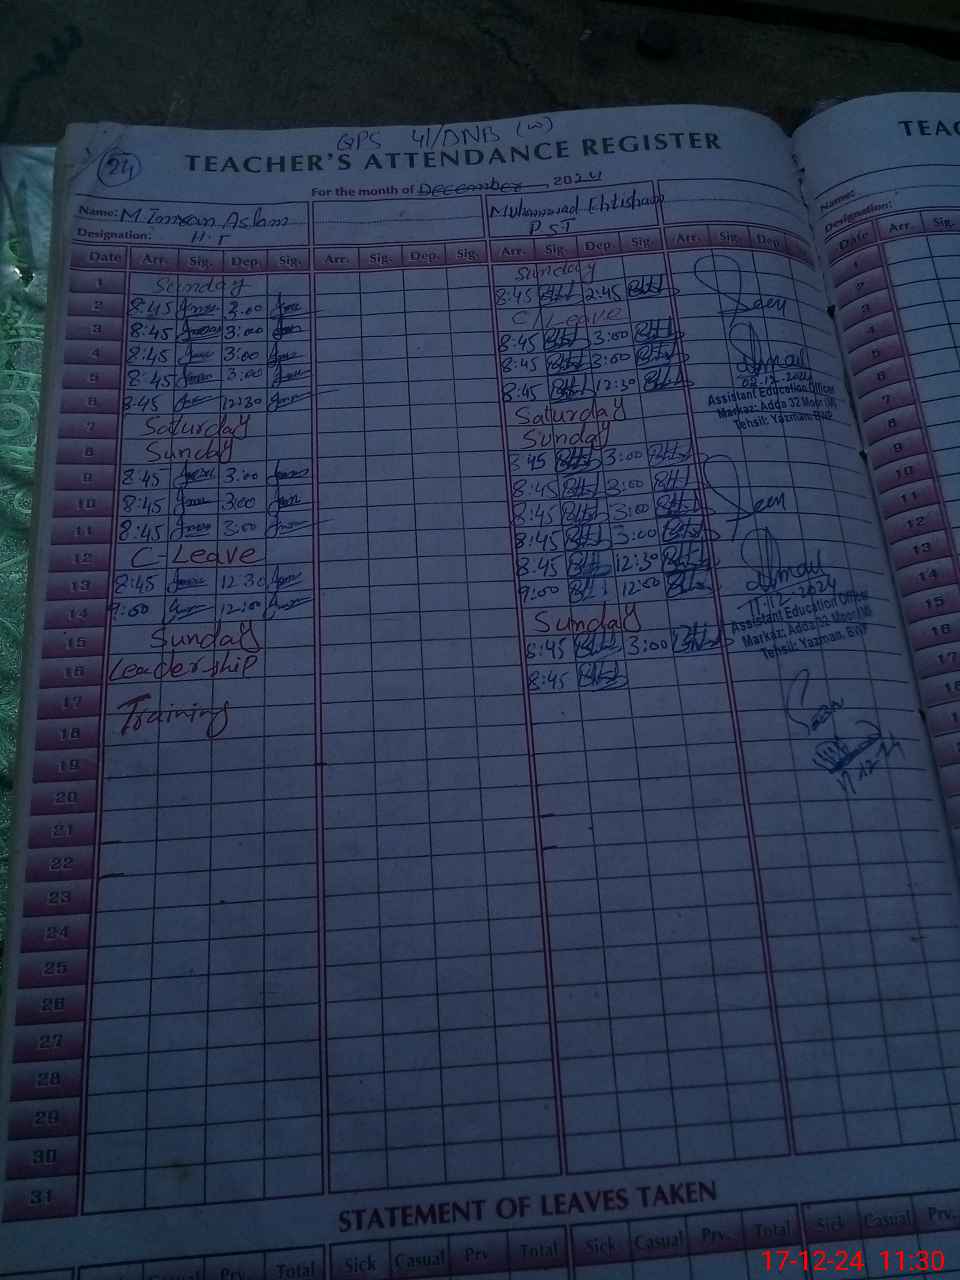 24
GPS 41/DNB (w)
TEACHER'S ATTENDANCE REGISTER
For the month of December 2024
Name: M. Imran Aslam
Designation: H.T
Muhammad Ehtisham
P.S.T
Date Arr. Sig. Dep. Sig. Arr. Sig. Dep. Sig. Arr. Sig. Dep. Sig. Arr. Sig. Dep.
1 Sunday Sunday
2 8:45 3:00 8:45 2:45
3 8:45 3:00 C/Leave
4 8:45 3:00 8:45 3:00
5 8:45 3:00 8:45 3:00
6 8:45 12:30 8:45 12:30
7 Saturday Saturday
8 Sunday Sunday
9 8:45 3:00 8:45 3:00
10 8:45 3:00 8:45 3:00
11 8:45 3:00 8:45 3:00
12 C-Leave 8:45 3:00
13 8:45 12:30 8:45 12:30
14 9:00 12:00 9:00 12:00
15 Sunday Sunday
16 Leadership 8:45 3:00
17 Training 8:45
18
19
20
21
22
23
24
25
26
27
28
29
30
31
Seen
Assistant Education Officer
Markaz: Adda 32 Moor (M)
Tehsil: Yazman, BWP
Seen
11-12-2024
Assistant Education Officer
Markaz: Adda 32 Moor (M)
Tehsil: Yazman, BWP
Seen
17-12-24
STATEMENT OF LEAVES TAKEN
Casual Prv. Total Sick Casual Prv. Total Sick Casual Prv. Total Sick Casual Prv.
TEAC
Name:
Designation:
Date Arr. Sig.
1
2
5
6
7
8
9
10
11
12
13
14
15
16
17
17-12-24 11:30